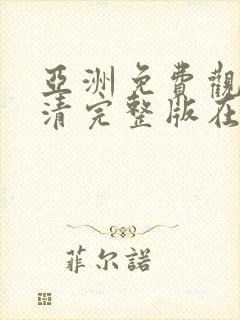 亞洲免費觀
清完整版在
菲尔諾